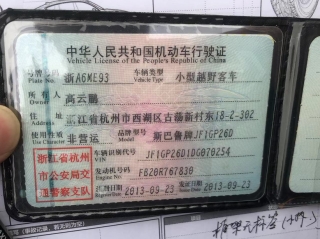 中华人民共和国机动车行驶证
Vehicle License of the People's Republic of China
号牌号码 浙A6ME93 车辆类型 小型越野客车
Plate No. Vehicle Type
所有人 高云鹏
Owner
住址 浙江省杭州市西湖区古荡新村东18-2-302
Address
使用性质 非营运 品牌型号 斯巴鲁牌JF1GP26D
Use Character Model
浙江省杭州 车辆识别代号 JF1GP26D1DG070254
VIN
市公安局交 发动机号码 FB20R767830
Engine No.
通警察支队 注册日期 2013-09-23 发证日期 2013-09-23
Register Date Issue Date